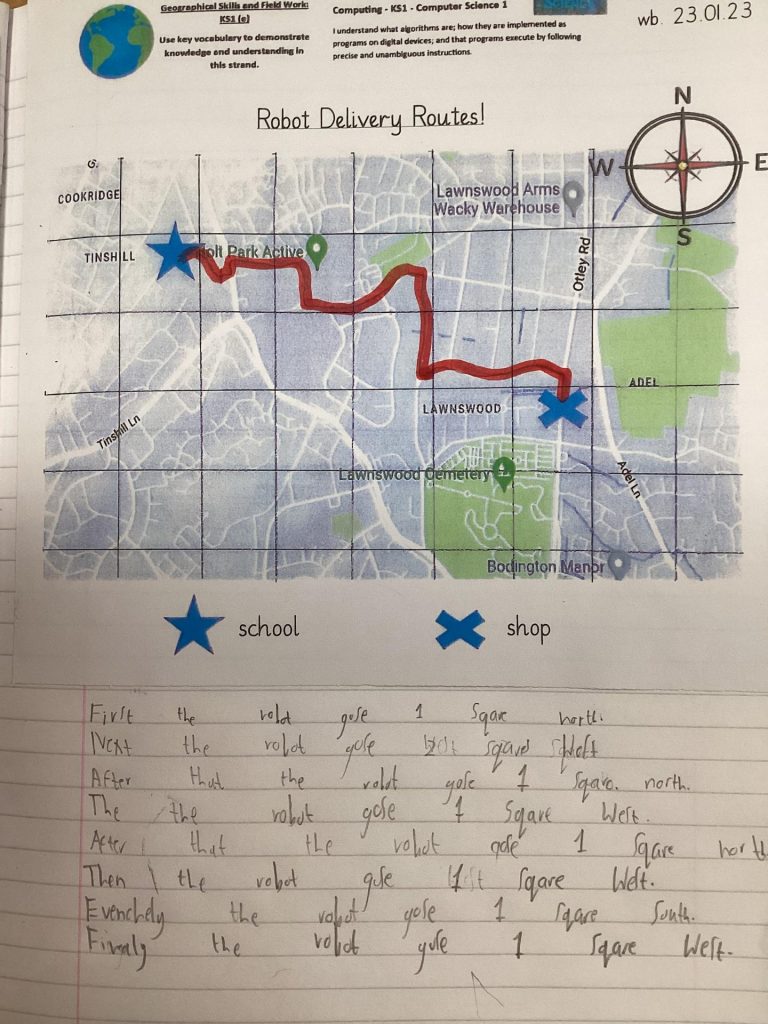 Geographical Skills and Field Work:
KS1 (e)
Use key vocabulary to demonstrate
knowledge and understanding in
this strand.
Computing - KS1 - Computer Science 1
I understand what algorithms are; how they are implemented as
programs on digital devices; and that programs execute by following
precise and unambiguous instructions.
wb. 23.01.23
Robot Delivery Routes!
N
W
E
S
COOKRIDGE
Lawnswood Arms
Wacky Warehouse
TINSHILL
Holt Park Active
Otley Rd
ADEL
LAWNSWOOD
Tinshill Ln
Lawnswood Cemetery
Adel Ln
Bodington Manor
school
shop
First the robot gose 1 Sqare north.
Next the robot gose sqares West
After that the robot gose 1 Sqare. north.
The the robot gose 1 Sqare West.
After that the robot gose 1 Sqare north
Then the robot gose 1 Sqare West.
Evenchely the robot gose 1 sqare South.
Finaly the robot gose 1 Sqare West.